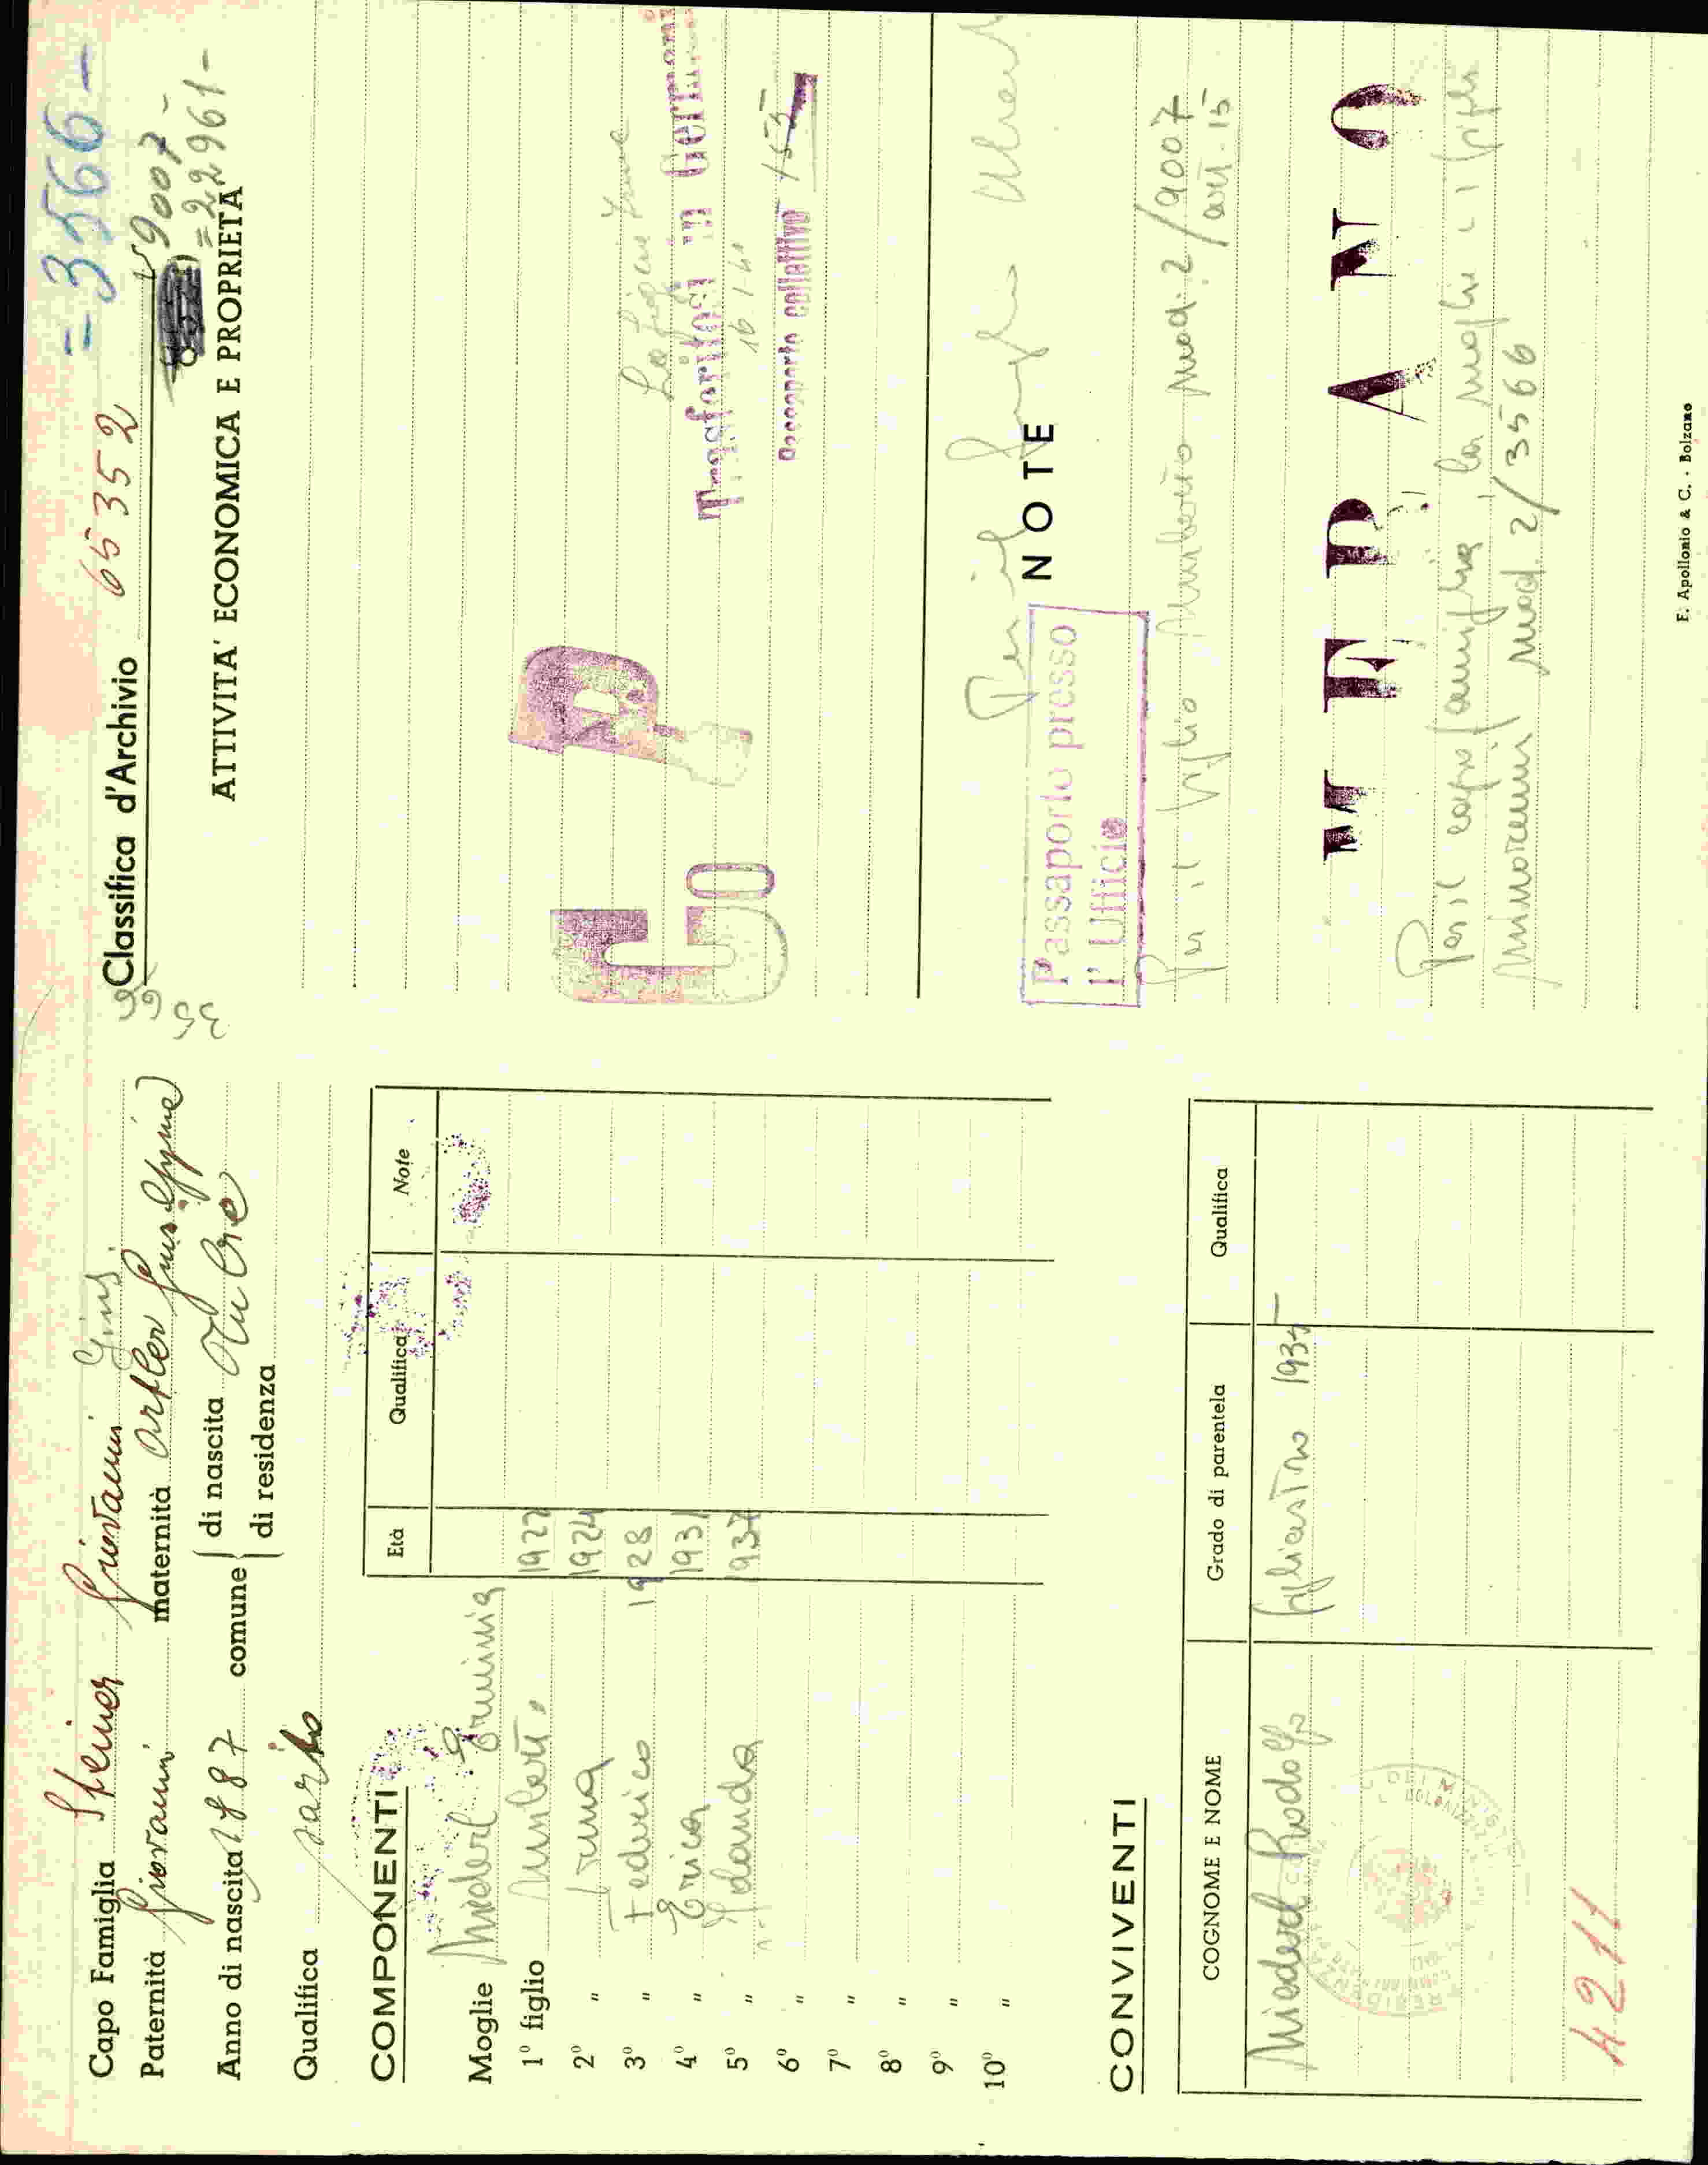 Capo Famiglia Steiner Giovanni
Paternità Giovanni maternità Giuseppina
Anno di nascita 1887 comune di nascita
di residenza
Qualifica sarto
COMPONENTI
Età Qualifica Note
Moglie Miederl Erminia
1º figlio Umberto 1922
2º " Irma 1924
3º " Federico 1928
4º " Erica 1931
5º " Jolanda 1937
6º "
7º "
8º "
9º "
10º "
CONVIVENTI
COGNOME E NOME Grado di parentela Qualifica
Miederl Rodolfo figliastro 1935
4211
3566
Classifica d'Archivio 65352 = 3566 -
9007 -
= 22961 -
ATTIVITA' ECONOMICA E PROPRIETÀ
La figlia Irma
Trasferitosi in Germania
16.1.41
Passaporto collettivo 155
NOTE
Passaporto presso
l' Ufficio
Per il figlio Umberto mod. 2/9007
art. 15
MERANO
Per il capo famiglia, la moglie e i figli
minorenni mod. 2/3566
F. Apollonio & C. - Bolzano